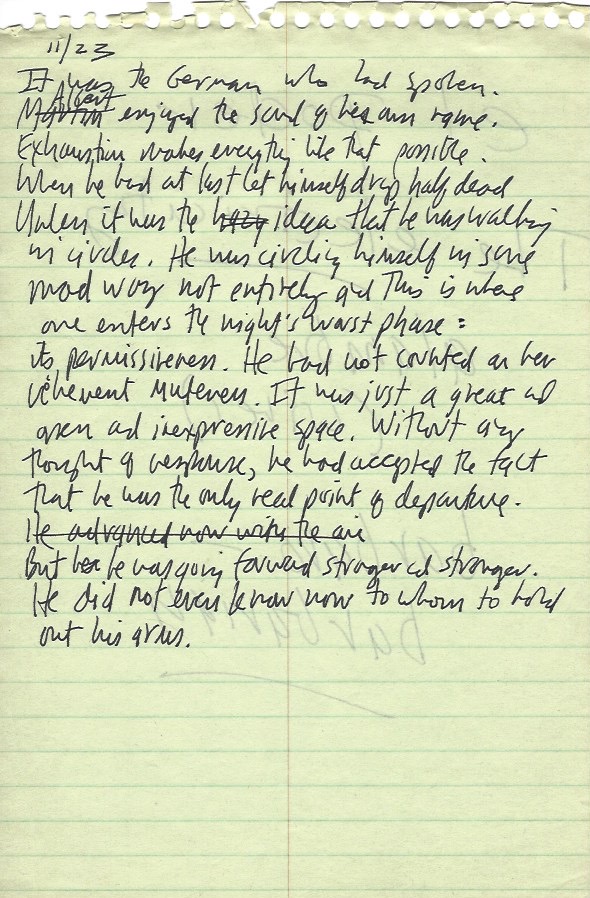 11/23
It was the German who had spoken.
Albert
Martin enjoyed the sound of his own name.
Exhaustion makes everything like that possible.
When he had at last let himself drop half dead
Unless it was the hazy idea that he was walking
in circles. He was circling himself in some
mad way not entirely This is where
one enters the night's worst phase:
its permissiveness. He had not counted on her
vehement muteness. It was just a great ad
open ad inexpressive space. Without any
thought of response, he had accepted the fact
that he was the only real point of departure.
He advanced now with the air
But he was going forward stronger ad stronger.
He did not even know now to whom to hold
out his arms.